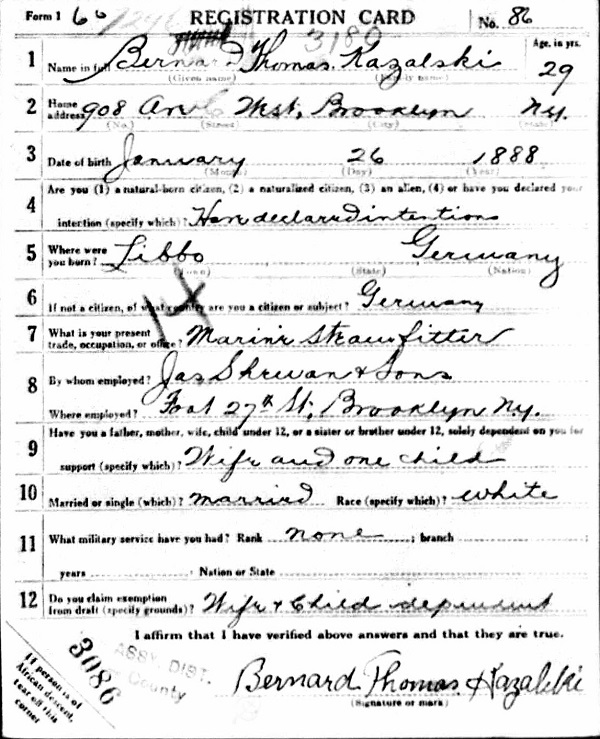 Form 1 REGISTRATION CARD No. 86
1 Name in full Bernard Thomas Kazalski Age, in yrs. 29
(Given name) (Family name)
2 Home address 908 West, Brooklyn Ny.
(No.) (Street) (City) (State)
3 Date of birth January 26 1888
(Month) (Day) (Year)
4 Are you (1) a natural-born citizen, (2) a naturalized citizen, (3) an alien, (4) or have you declared your
intention (specify which)? Have declared intentions
5 Where were you born? Libbo Germany
(Town) (State) (Nation)
6 If not a citizen, of what country are you a citizen or subject? Germany
7 What is your present trade, occupation, or office? Marine Steamfitter
8 By whom employed? Jas Shewan & Sons
Where employed? Foot 27th St, Brooklyn Ny.
9 Have you a father, mother, wife, child under 12, or a sister or brother under 12, solely dependent on you for
support (specify which)? Wife and one child
10 Married or single (which)? married Race (specify which)? white
11 What military service have you had? Rank none ; branch
years ; Nation or State
12 Do you claim exemption from draft (specify grounds)? Wife & Child dependent
I affirm that I have verified above answers and that they are true.
Bernard Thomas Kazalski
(Signature or mark)
If person is of
African descent,
tear off this
corner
3086
ASSY. DIST.
County